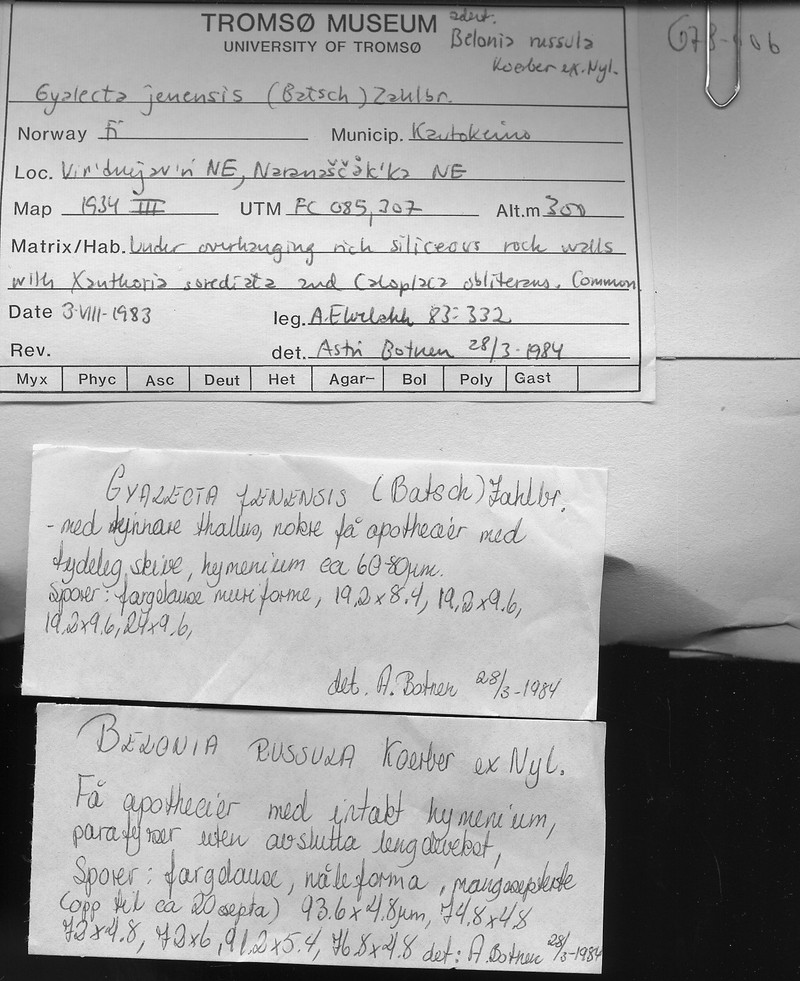 TROMSØ MUSEUM
UNIVERSITY OF TROMSØ
Belonia russula
Koerber ex. Nyl.
Gyalecta jenensis (Batsch) Zahlbr.
Norway Fi Municip. Kautokeino
Loc. NE, NE
Map 1934 III UTM FC 085,307 Alt.m 300
Matrix/Hab. Under overhanging rich siliceous rock walls
with Xanthoria sorediata and Caloplaca obliterans. Common
Date 3-VIII-1983 leg. A. 83-332
Rev. det. Astri Botnen 28/3-1984
Myx Phyc Asc Deut Het Agar– Bol Poly Gast
GYALECTA JENENSIS (Batsch) Zahlbr.
- med tynnare thallus, nokre få apotheciér med
tydeleg skive, hymenium ca 60-80µm.
Sporer: fargelause muriforme, 19,2x8.4, 19,2x9.6,
19,2x9.6, 24x9.6,
det. A. Botnen 28/3-1984
BELONIA RUSSULA Koerber ex Nyl.
Få apotheciér med intakt hymenium,
parafyser uten avslutta lengdevekst,
Sporer: fargelause, nåleforma, mangesepterte
(opp til ca 20 septa) 93.6x4.8µm, 74.8x4.8
72x4.8, 72x6, 91.2x5.4, 76.8x4.8 det: A. Botnen 28/3-1984